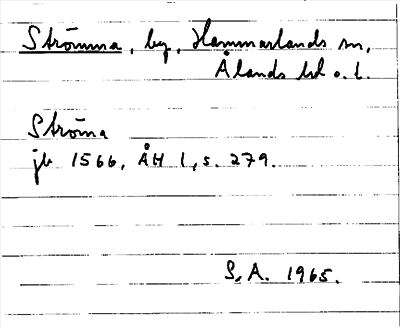 Strömma, by, Hammarlands sn,
Ålands lrd o. l.
Ströma
jb 1566, ÅH 1, s. 279.
S. A. 1965.